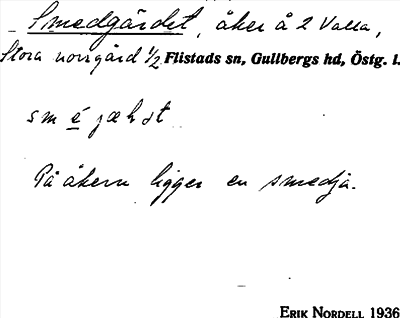 Smedgärdet, åker å 2 Valla,
Stora norrgård 1/2 Flistads sn, Gullbergs hd, Östg. l.
På åkern ligger en smedja.
ERIK NORDELL 1936